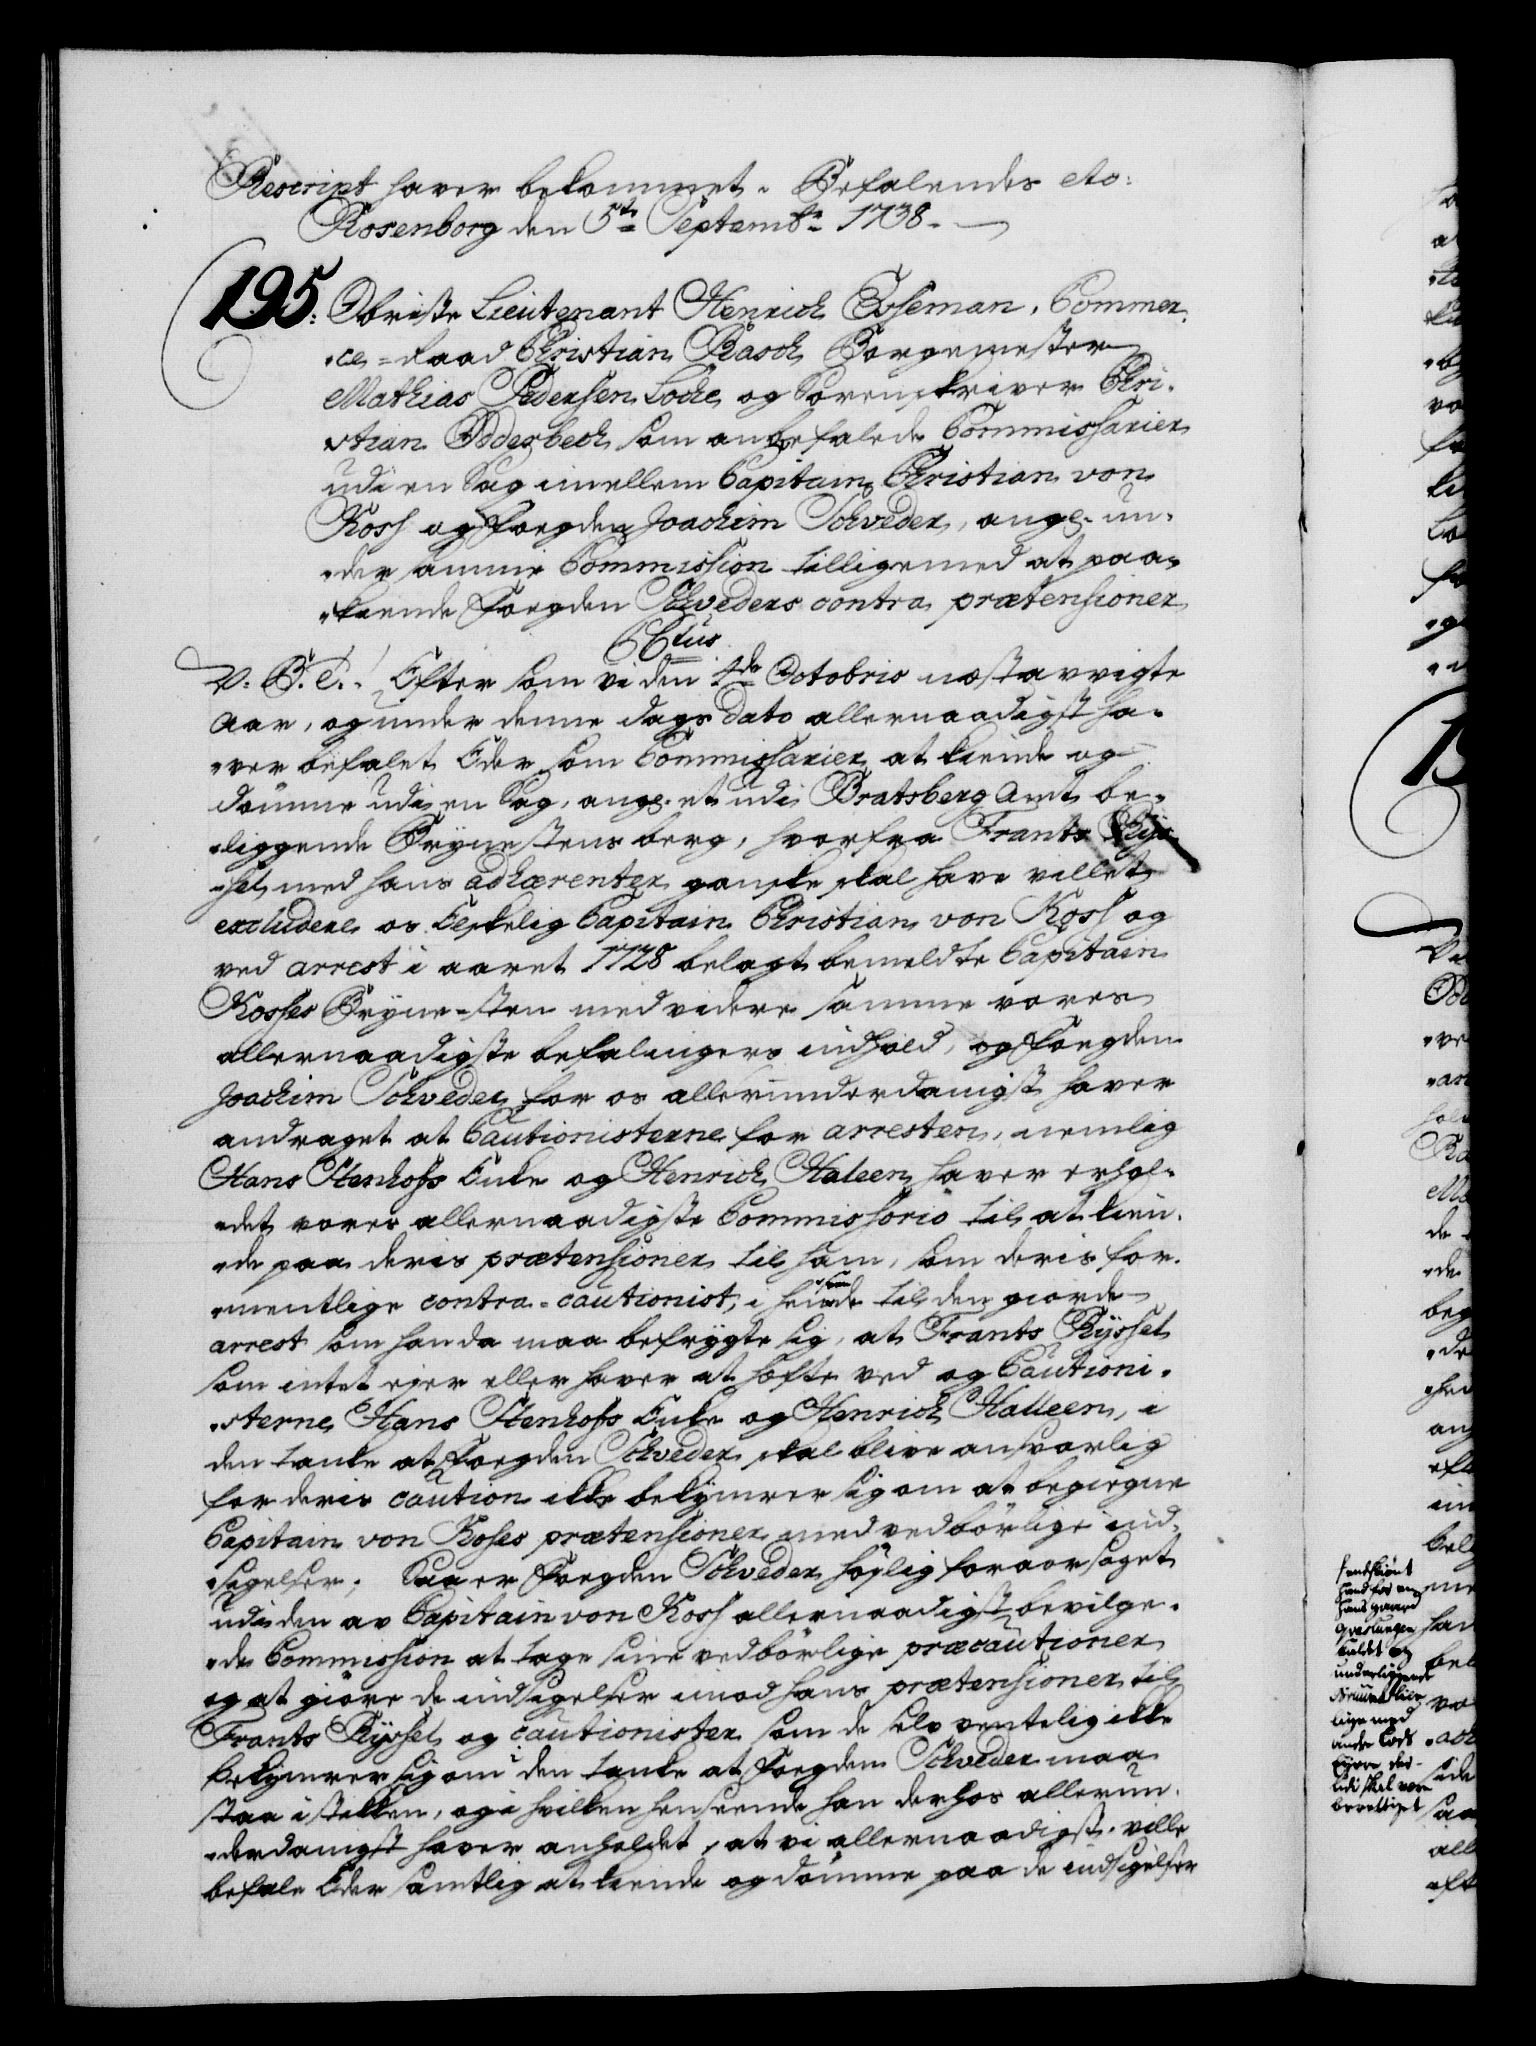 Rescript haver bekommet. Befalendes etc:
Rosenborg den 5te Septembr 1738.
195. Obriste Lieutenant Henrich Coseman, Commer„
„ce-Raad Christian Rasch, Borgemester
Mathias Pedersen Loche, og Sorenskriver Chri„
„stian Bodesbech, som anbefalede Commissarier
udi en Sag imellem Capitain Christian von
Koss og Foegden Joachim Schveder, ang: un„
„der samme Commission tilligemed at paa„
„kiende Foegden Schveders contra prætensioner
C6tus
V. B. T. Eftersom vi den 4de Octobris næstavvigte
Aar, og under denne dags dato allernaadigst ha„
„ver befalet Eder som Commissarier at kiende og
dømme udi en Sag, ang: et udi Bratsberg Amt be„
„liggende Brynestens berg, hvorfra Frants Rys„
„sel med hans adhærenter ganske skal have villet
excludere os Elskelig Capitain Christian von Koss og
ved arrest i aaret 1728 belagt bemeldte Capitain
Kosses Bryne-sten med videre samme vores
allernaadigste befalingers indhold, og Foegden
Joachim Schveder for os allerunderdanigst haver
andraget at Cautionisterne for arresten, nemlig
Hans Stenhofs Enke og Henrich Halleen haver erhol„
„det vores allernaadigste Commissorio til at kien„
„de paa deris prætensioner til ham, som deris for„
„mentlige contra-cautionist, i henseende til den giorde
arrest som han da maa befrygte sig, at Frants Ryssel
som intet ejer eller haver at hæfte ved og Cautioni„
„sterne Hans Stenhofs Enke og Henrich Halleen, i
den tanke at Foegden Schveder skal blive ansvarlig
for deris caution ikke bekymrer sig om at begiegne
Capitain von Koses prætensioner med vedbørlige ind„
„sigelser; Saa er Foegden Schveder høylig foraarsaget
udi den av Capitain von Koss allernaadigst bevilge„
„de Commission at tage sine vedbørlige præcautioner
og at giøre de indsigelser imod hans prætensioner til
Frants Ryssel og cautionister som de selv ventelig ikke
bekymrer sig om i den tanke at Foegden Schveder maa
staa i stikken, og i hvilken henseende han derhos allerun„
„derdanigst haver anholdet, at vi allernaadigst ville
befale Eder samtlig at kiende og dømme paa de indsigelser